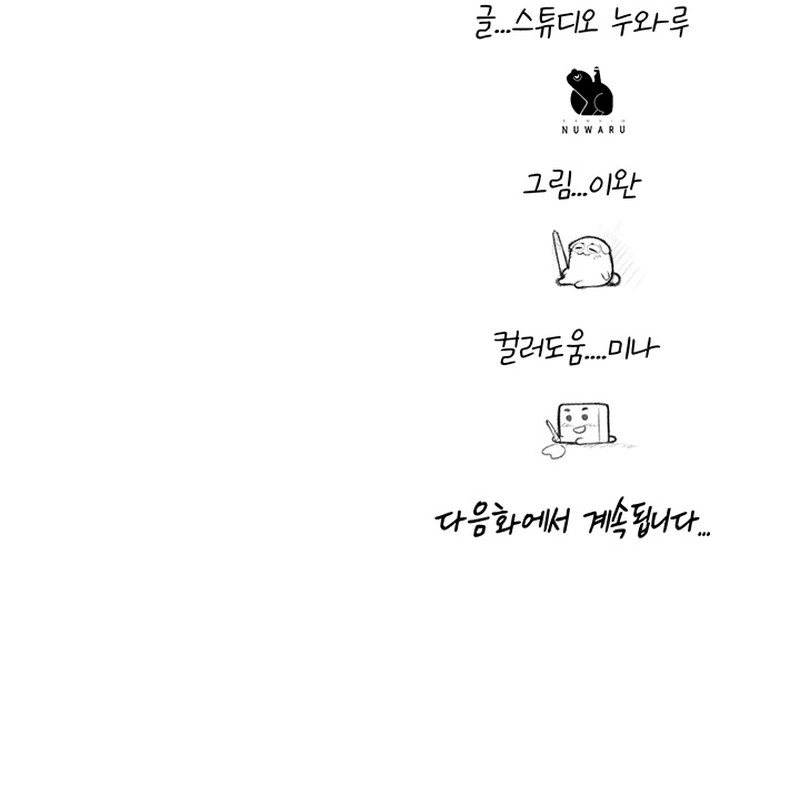 글...스튜디오 누와루
NUWARU
그림...이완
컬러도움....미나
다음화에서 계속됩니다...